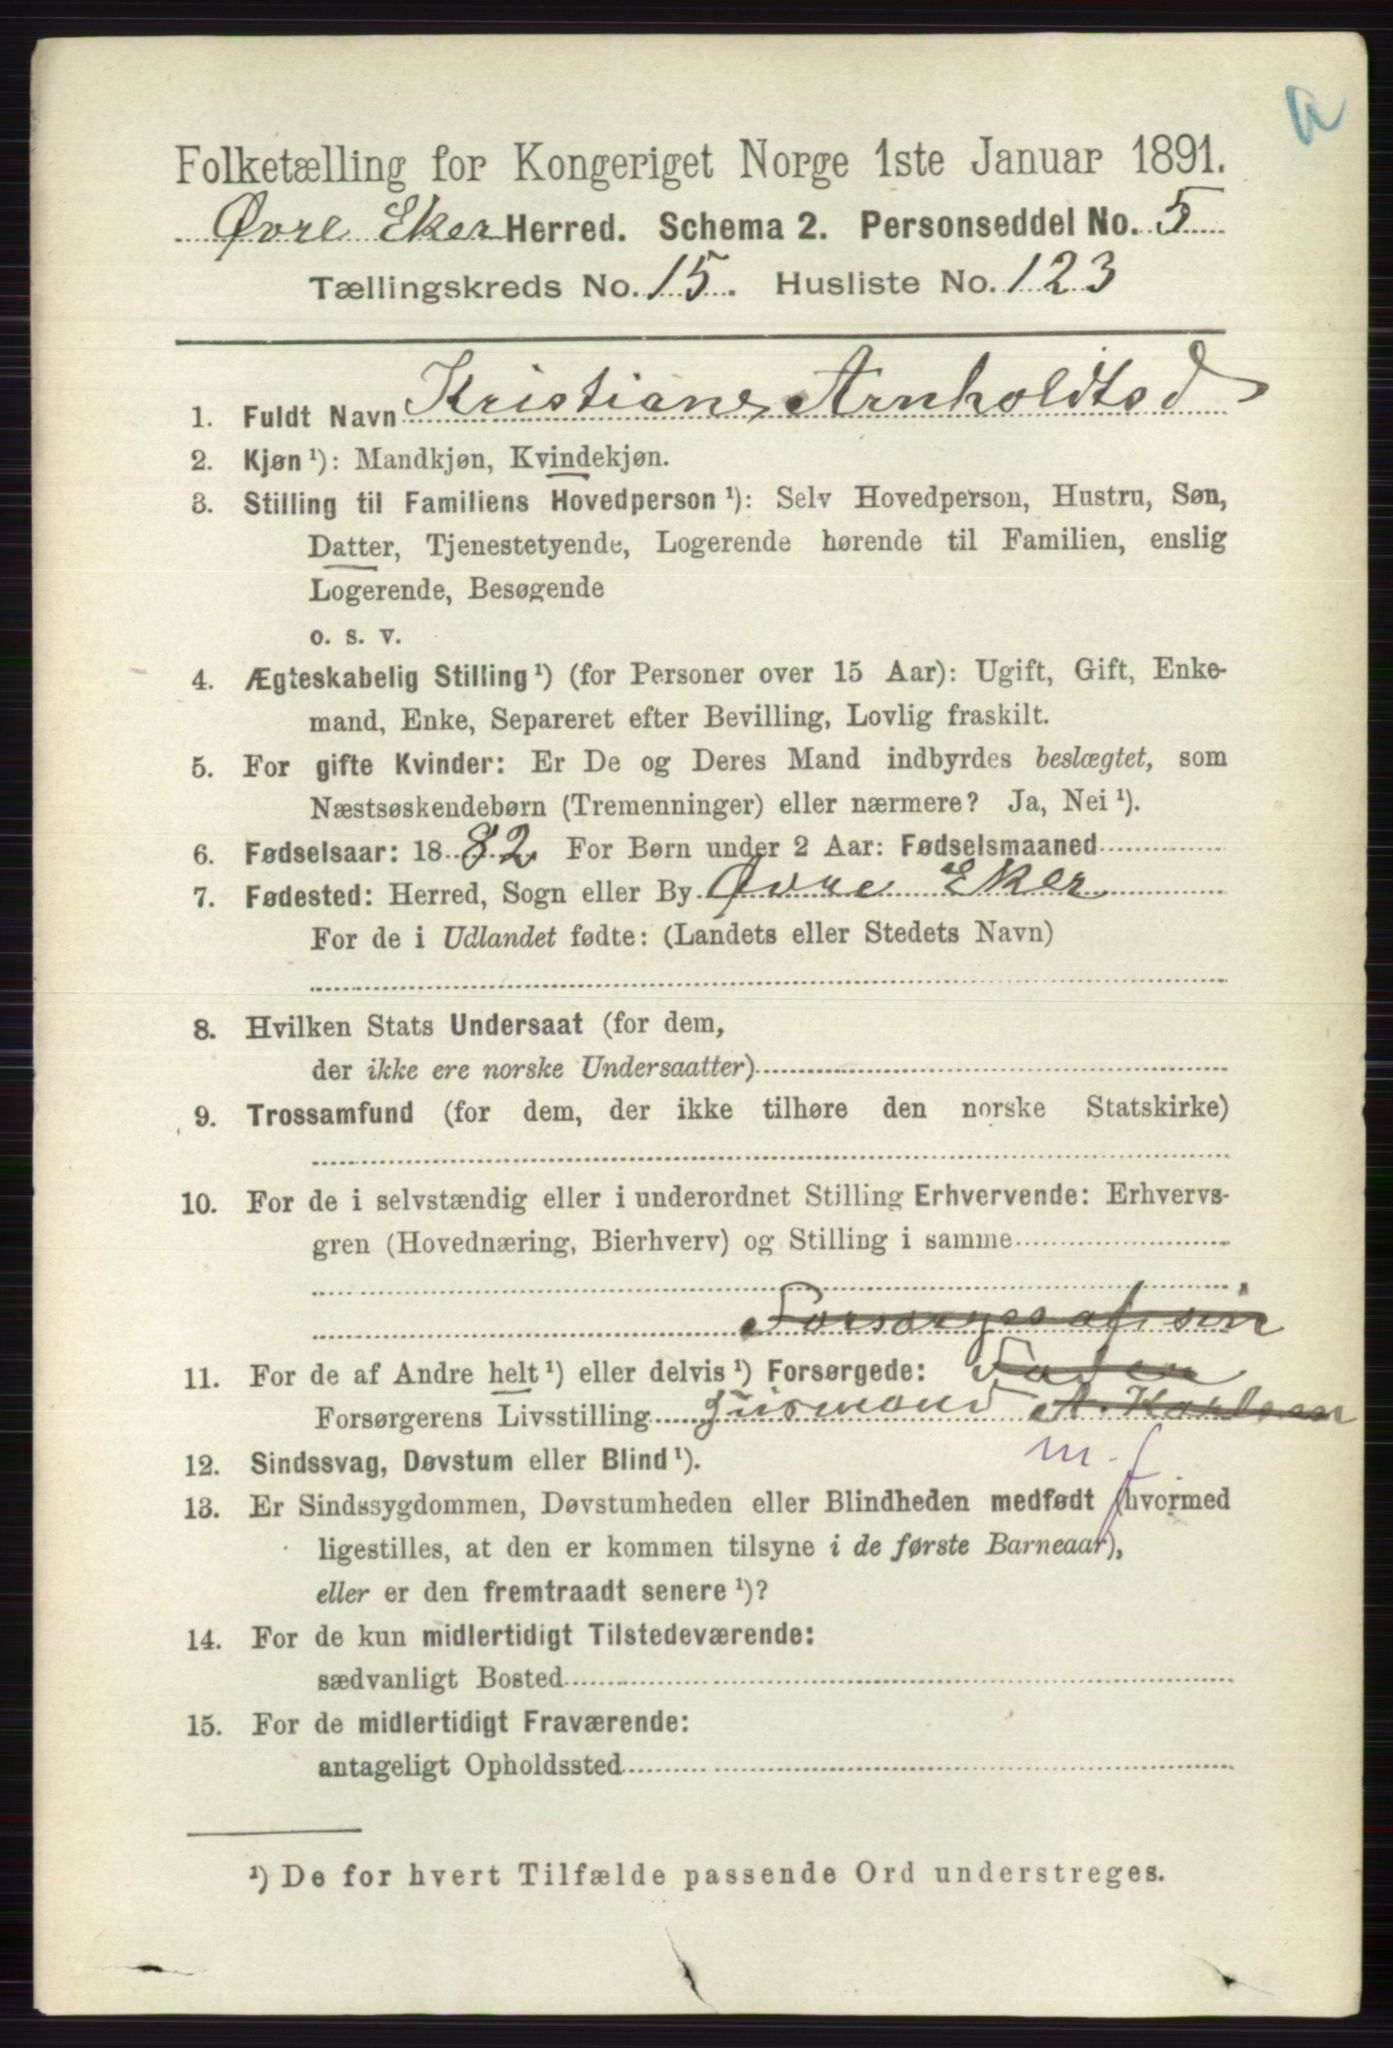 a
Folketælling for Kongeriget Norge 1ste Januar 1891.
Øvre Eker Herred. Schema 2. Personseddel No. 5
Tællingskreds No. 15. Husliste No. 123
1. Fuldt Navn Kristiane Arnholdtsd
2. Kjøn ¹): Mandkjøn, Kvindekjøn.
3. Stilling til Familiens Hovedperson ¹): Selv Hovedperson, Hustru, Søn,
Datter, Tjenestetyende, Logerende hørende til Familien, enslig
Logerende, Besøgende
o. s. v.
4. Ægteskabelig Stilling ¹) (for Personer over 15 Aar): Ugift, Gift, Enke-
mand, Enke, Separeret efter Bevilling, Lovlig fraskilt.
5. For gifte Kvinder: Er De og Deres Mand indbyrdes beslægtet, som
Næstsøskendebørn (Tremenninger) eller nærmere? Ja, Nei ¹).
6. Fødselsaar: 1882 For Børn under 2 Aar: Fødselsmaaned
7. Fødested: Herred, Sogn eller By Øvre Eker
For de i Udlandet fødte: (Landets eller Stedets Navn)
8. Hvilken Stats Undersaat (for dem,
der ikke ere norske Undersaatter)
9. Trossamfund (for dem, der ikke tilhøre den norske Statskirke)
10. For de i selvstændig eller i underordnet Stilling Erhvervende: Erhvervs-
gren (Hovednæring, Bierhverv) og Stilling i samme
Forsørges af sin
11. For de af Andre helt ¹) eller delvis ¹) Forsørgede: Fader
Forsørgerens Livsstilling Huusmand A. Karlsen
m. f
12. Sindssvag, Døvstum eller Blind ¹).
13. Er Sindssygdommen, Døvstumheden eller Blindheden medfødt (hvormed
ligestilles, at den er kommen tilsyne i de første Barneaar),
eller er den fremtraadt senere ¹)?
14. For de kun midlertidigt Tilstedeværende:
sædvanligt Bosted
15. For de midlertidigt Fraværende:
antageligt Opholdssted
¹) De for hvert Tilfælde passende Ord understreges.